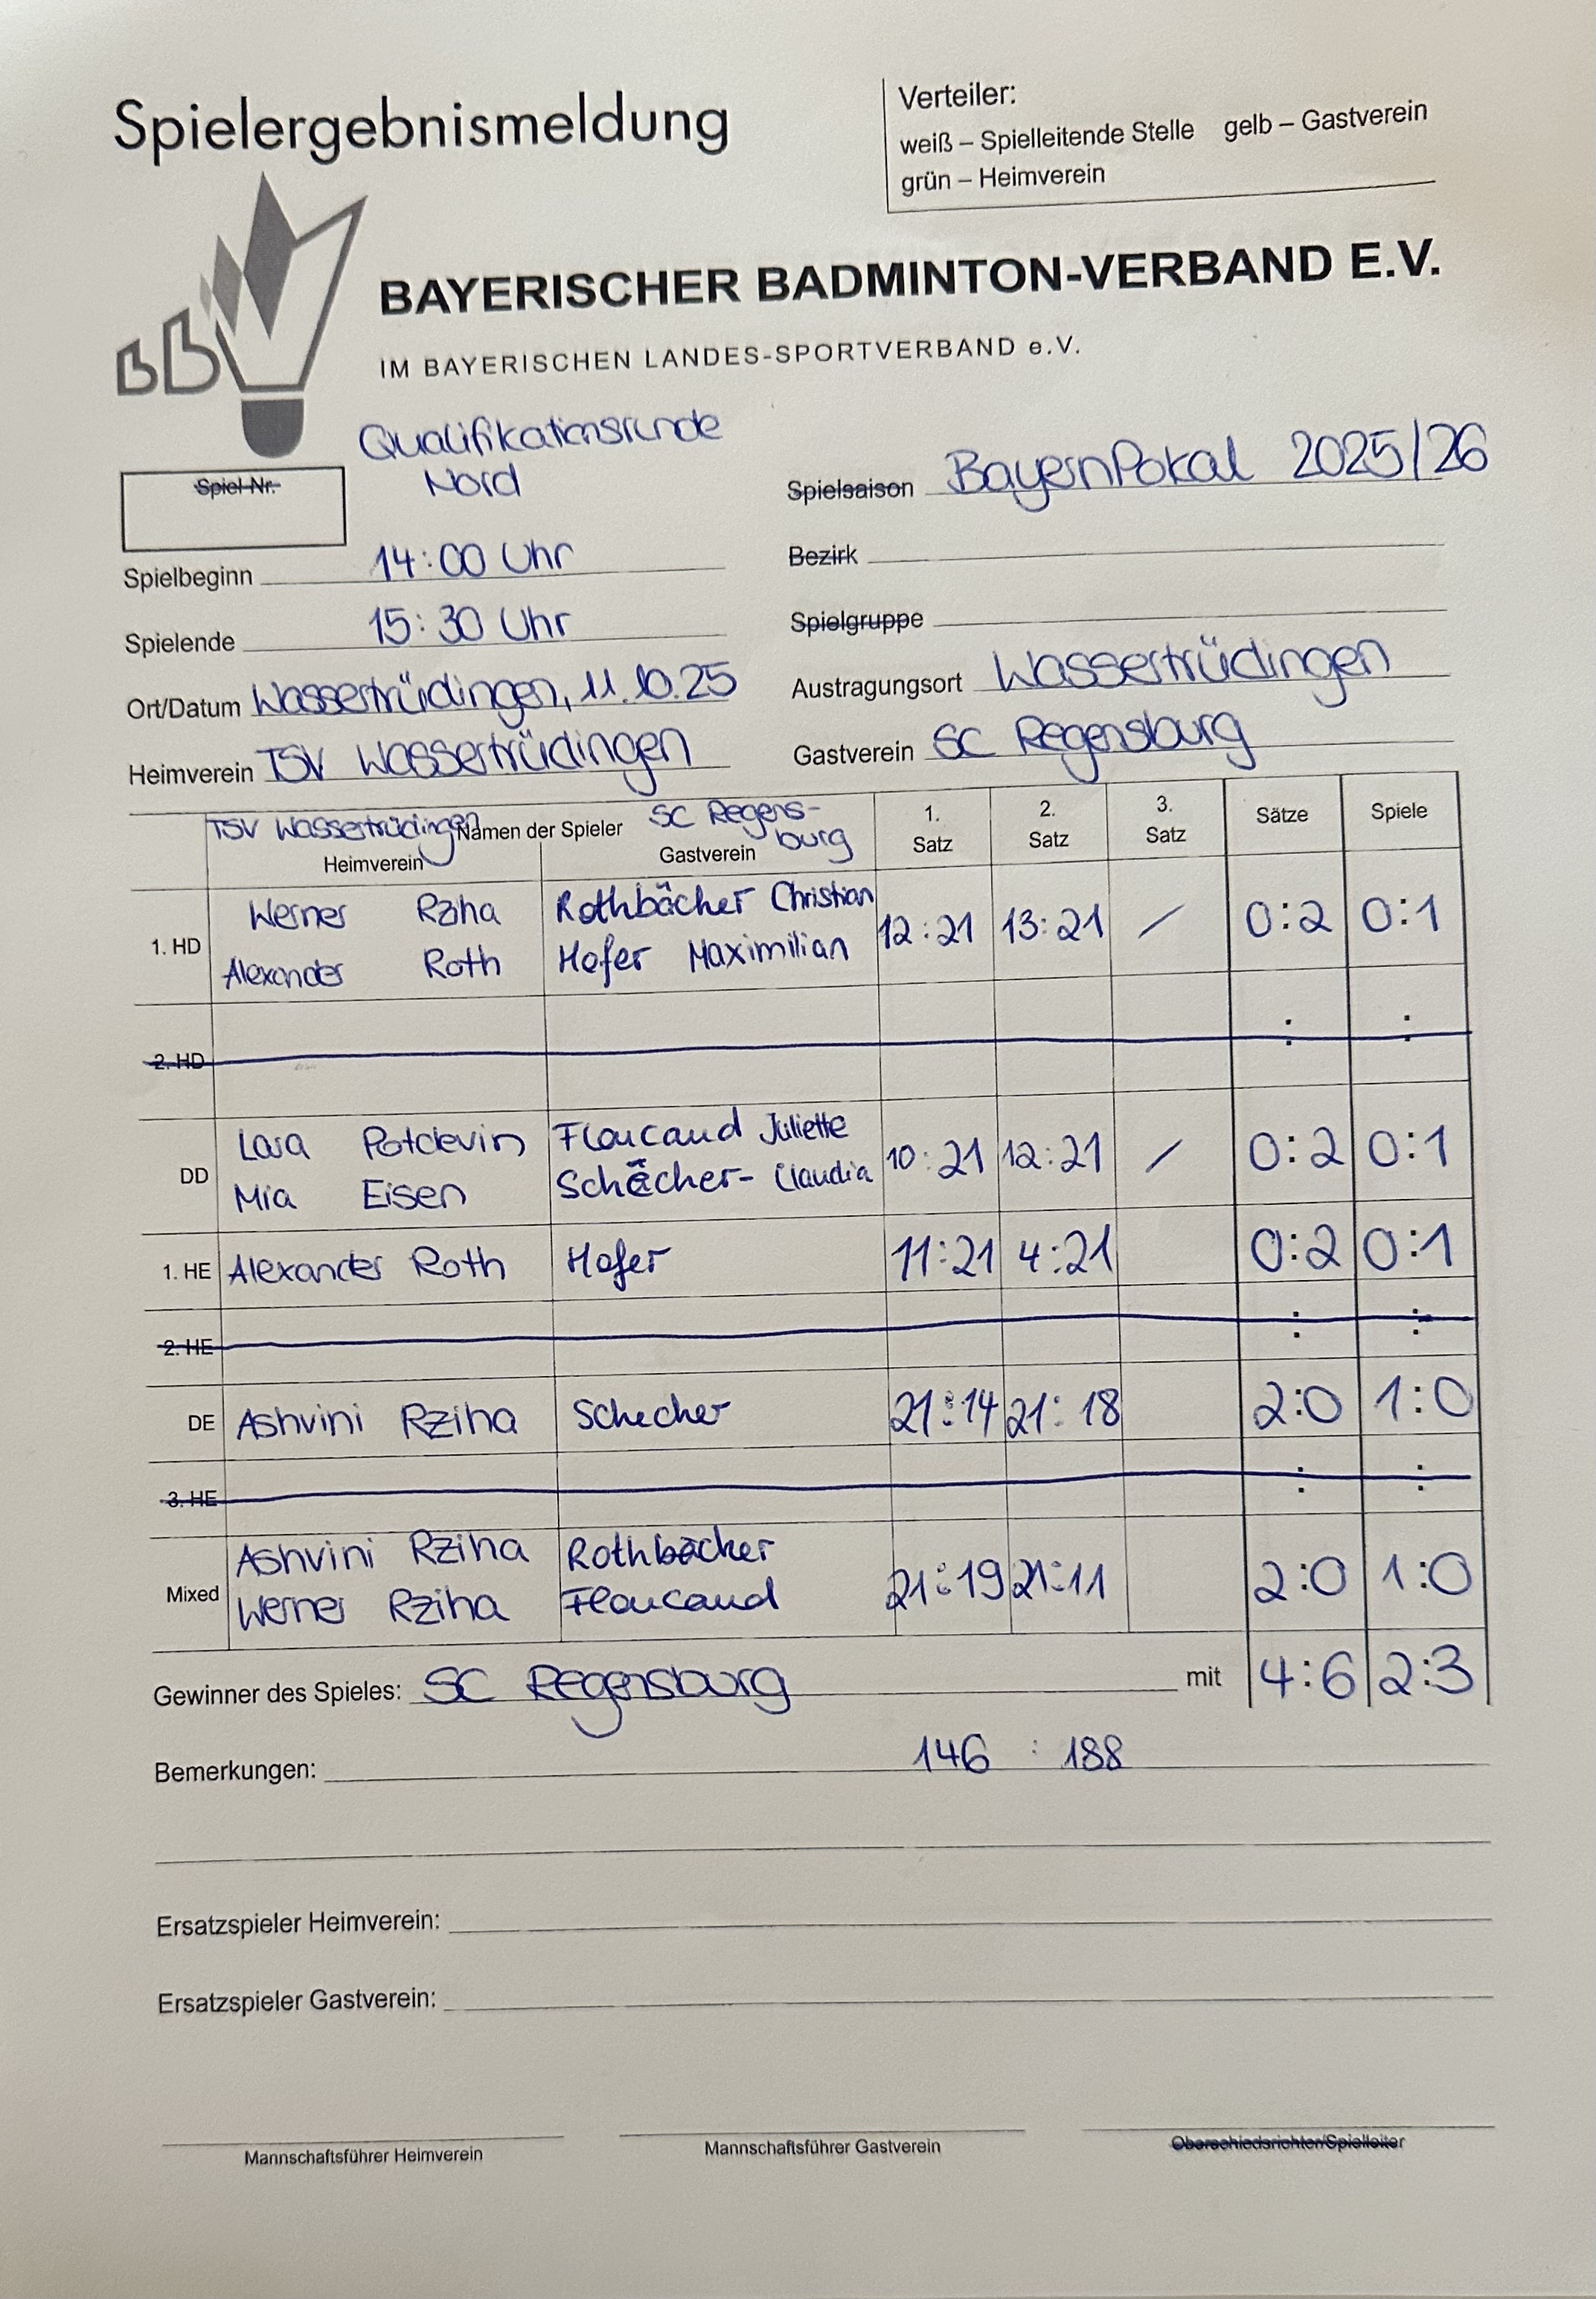 Spielergebnismeldung
Verteiler:
weiß – Spielleitende Stelle gelb – Gastverein
grün – Heimverein
BBV
BAYERISCHER BADMINTON-VERBAND E.V.
IM BAYERISCHEN LANDES-SPORTVERBAND e.V.
Qualifikationsrunde
Nord
Spiel-Nr.
Spielsaison BayernPokal 2025/26
Spielbeginn 14:00 Uhr
Bezirk
Spielende 15:30 Uhr
Spielgruppe
Ort/Datum Wassertrüdingen, 11.10.25
Austragungsort Wassertrüdingen
Heimverein TSV Wassertrüdingen
Gastverein SC Regensburg
TSV Wassertrüdingen Namen der Spieler SC Regens-
burg
Heimverein Gastverein
1. Satz 2. Satz 3. Satz Sätze Spiele
1. HD Werner Rziha Rothbächer Christian 12:21 13:21 / 0:2 0:1
Alexander Roth Hofer Maximilian
2. HD : :
DD Lara Potdevin Floucaud Juliette 10:21 12:21 / 0:2 0:1
Mia Eisen Schächer- Claudia
1. HE Alexander Roth Hofer 11:21 4:21 0:2 0:1
2. HE : :
DE Ashvini Rziha Schecher 21:14 21:18 2:0 1:0
3. HE : :
Mixed Ashvini Rziha Rothbäcker 21:19 21:11 2:0 1:0
Werner Rziha Floucaud
Gewinner des Spieles: SC Regensburg mit 4:6 2:3
Bemerkungen: 146 : 188
Ersatzspieler Heimverein:
Ersatzspieler Gastverein:
Mannschaftsführer Heimverein
Mannschaftsführer Gastverein
Oberschiedsrichter/Spielleiter